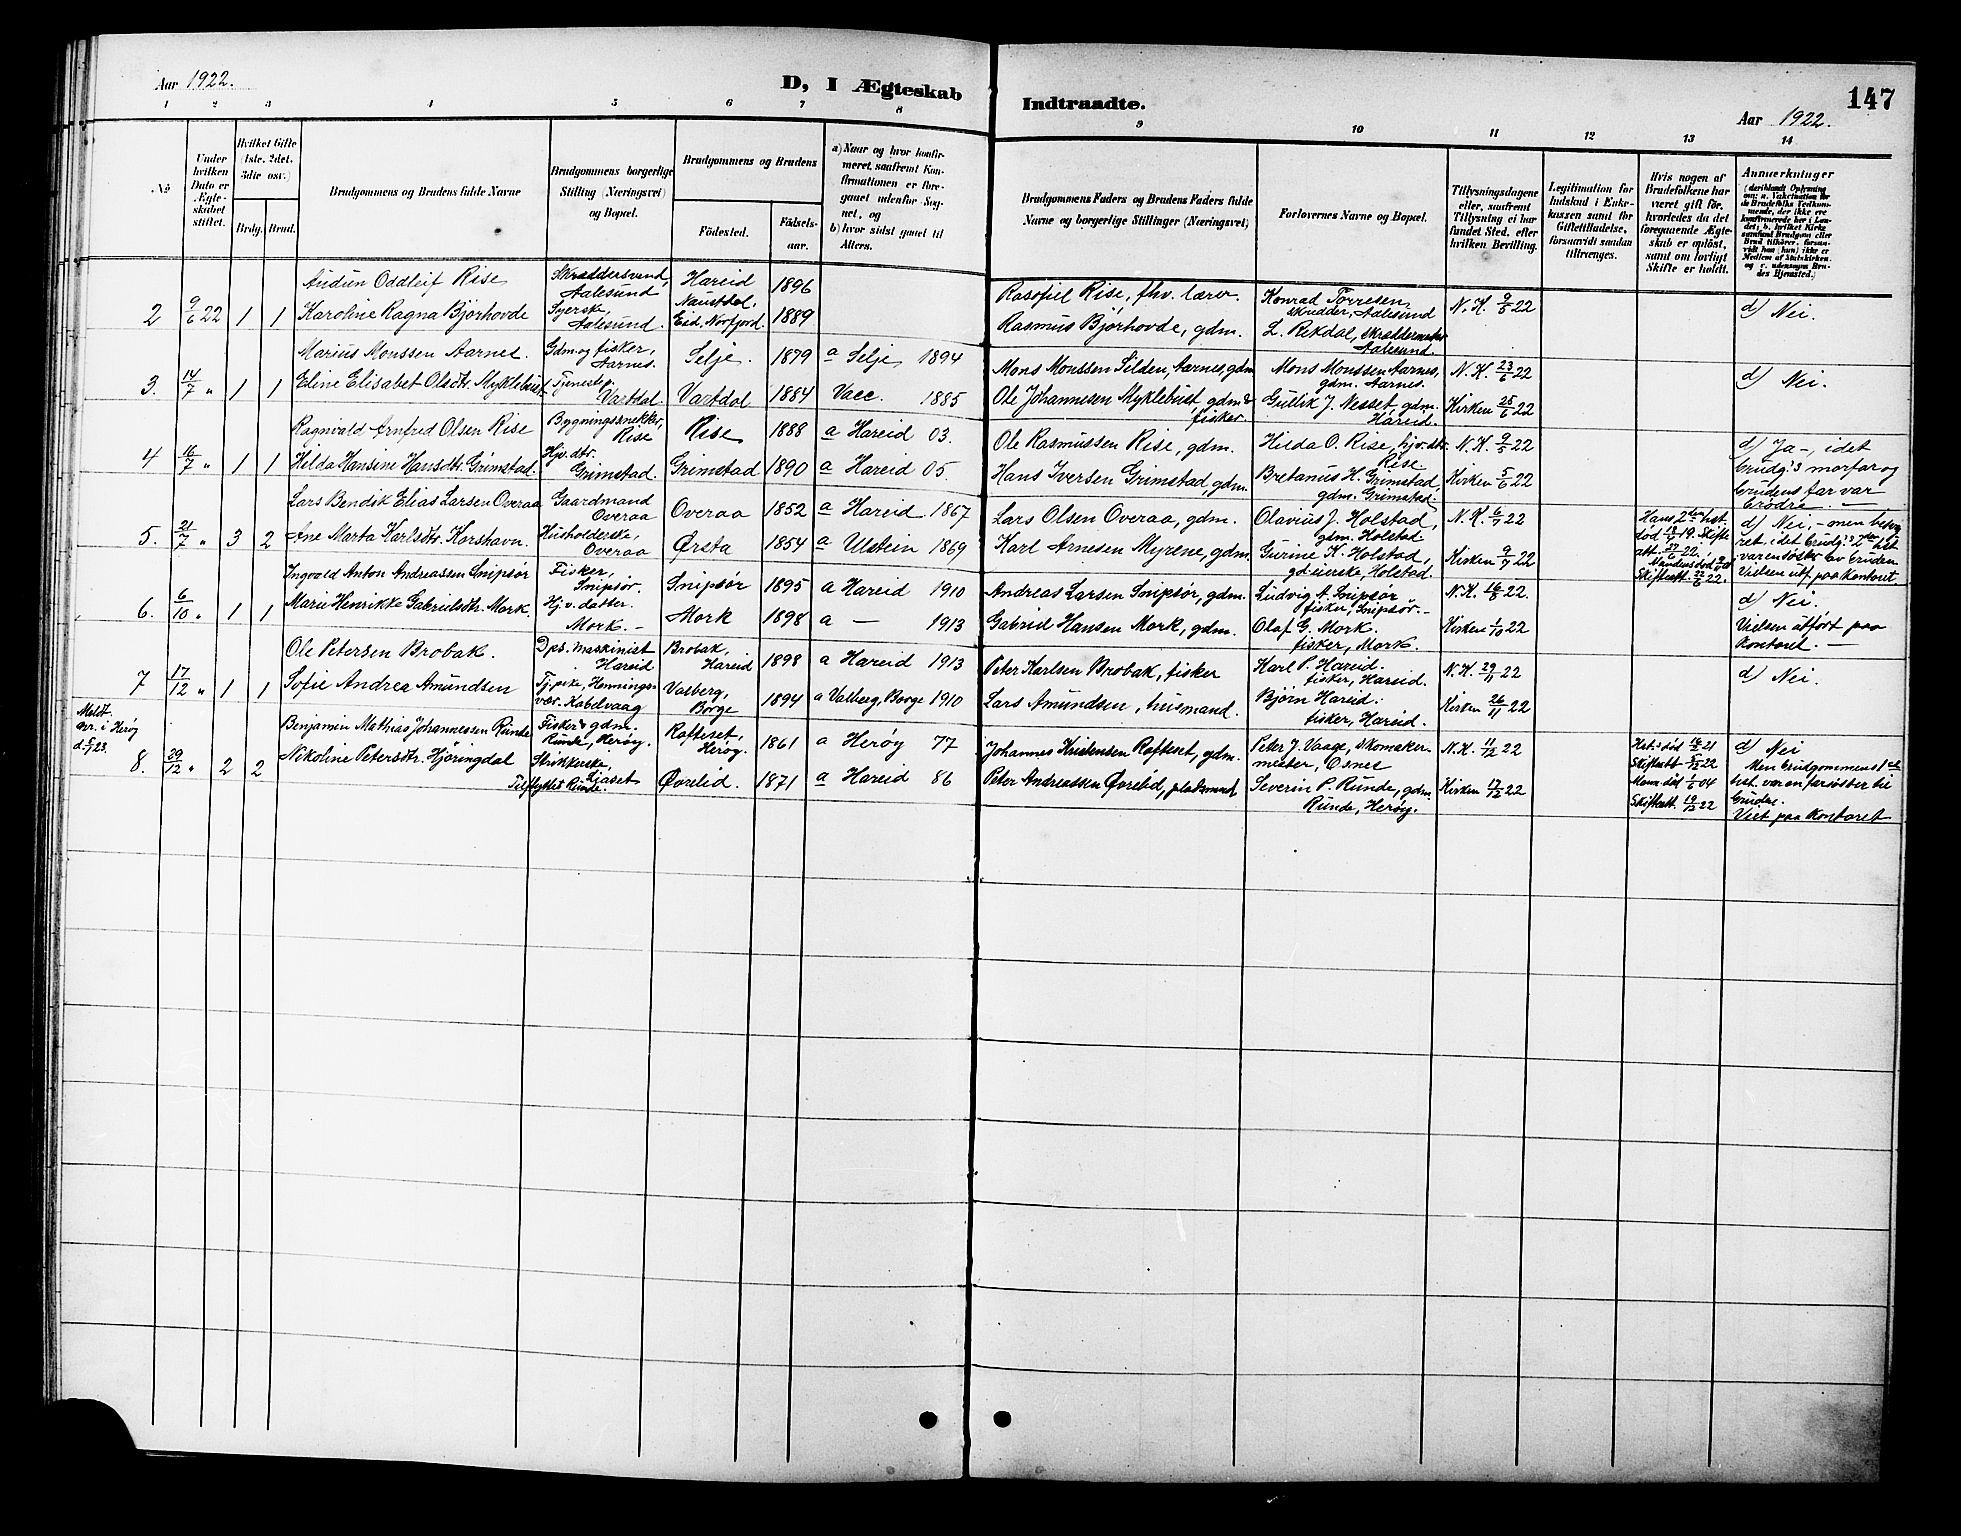 Aar 1922.
D, I Ægteskab
Indtraadte.
147
Aar 1922.
1 2 3 4 5 6 7 8 9 10 11 12 13 14
No
Under hvilken Dato er Ægteskabet stiftet.
Hvilket Gifte (1ste. 2det. 3die osv.)
Brdg. Brud.
Brudgommens og Brudens fulde Navne
Brudgommens borgerlige Stilling (Næringsvei) og Bopæl.
Brudgommens og Brudens
Födested.
Födselsaar.
a) Naar og hvor konfirmeret, saafremt Konfirmationen er foregaaet udenfor Sognet, og
b) hvor sidst gaaet til Alters.
Brudgommens Faders og Brudens Faders fulde Navne og borgerlige Stillinger (Næringsvei)
Forlovernes Navne og Bopæl.
Tillysningsdagene eller, saafremt Tillysning ei har fundet Sted, efter hvilken Bevilling.
Legitimation for Indskud i Enkekassen samt for Giftetilladelse, forsaavidt saadan tiltrænges.
Hvis nogen af Brudefolkene har været gift før, hvorledes da det foregaaende Ægteskab er oplöst, samt om lovligt Skifte er holdt.
Anmærkninger
Audun Oddleif Rise Skræddersvend, Aalesund Hareid 1896 Rasofiel Rise, fhv. lærer. Konrad Torresen, skrædder, Aalesund N.K. 9/5 22 d) Nei.
2 9/6 22 1 1 Karoline Ragna Bjørhovde Syerske, Aalesund. Naustdal, Eid, Norfjord. 1889 Rasmus Bjørhovde, gdm. L. Rekdal, skræddermester Aalesund.
Marius Monssen Aarnes. Gdm. og fisker, Aarnes. Selje. 1879 a Selje 1894 Mons Monssen Silden, Aarnes, gdm Mons Monssen Aarnes, gdm. Aarnes. N.K. 23/6 22 d) Nei.
3. 14/7 " 1 1 Eline Elisabet Olsdtr. Myklebust Tjenestep. Vartdal. Vartdal 1884 Vacc. 1885 Ole Johannesen Myklebust gdm & fisker. Gullik J. Nesset, gdm. Hareid. Kirken 25/6 22
Ragnvald Arnfred Olsen Rise Bygningssnekker, Rise Rise 1888 a Hareid 03. Ole Rasmussen Rise, gdm. Hilda O. Rise, hjv. dtr. Rise N.K. 9/5 22 d) Ja -, idet brudg.s morfar og brudens far var brødre. -
4 16/7 " 1 1 Helda Hansine Hansdtr. Grimstad. Hjv. dtr. Grimstad. Grimstad 1890 a Hareid 05. Hans Iversen Grimstad, gdm. Bretanus H. Grimstad, gdm. Grimstad. Kirken 5/6 22
Lars Bendik Elias Larsen Overaa Gaardmand Overaa Overaa 1852 a Hareid 1867 Lars Olsen Overaa, gdm. Olavius J. Holstad, gdm. Holstad N.K. 6/7 22 Hans 2den hst. død 19. Skifteatt. 22. d) Nei, - men idet brudg.s 2den hst var en søster av bruden. Vielsen utf. paa kontoret
5. 21/7 " 3 2 Ane Marta Karlsdtr. Korshavn. Husholderske, Overaa Ørsta 1854 a Ulstein 1869 Karl Arnesen Myrene, gdm. Gurine K. Holstad, gd.eierske, Holstad. Kirken 9/7 22 Skifteatt. 22/6 22.
Ingvald Anton Andreassen Snipsør Fisker, Snipsør. Snipsør 1895 a Hareid 1910 Andreas Larsen Snipsør, gdm. Ludvig A. Snipsør fisker, Snipsør. - N.K. 16/8 22. d) Nei. Vielsen utført paa kontoret. -
6. 6/10 " 1 1 Marie Henrikke Gabrielsdtr. Mork. Hjv. datter. Mork. - Mork 1898 a - 1913 Gabriel Hansen Mork, gdm. Olaf G. Mork. fisker, Mork. Kirken 1/10 22
Ole Petersen Brobak. Dps. maskinist Hareid Brobak, Hareid 1898 a Hareid 1913 Peter Karlsen Brobak, fisker Karl P. Hareid. fisker, Hareid. N.K. 29/11 22 d) Nei.
7 17/12 " 1 1 Sofie Andrea Amundsen Tj.pike, Henningsvær. Kabelvaag Valberg, Borge 1894 a Valberg, Borge 1910 Lars Amundsen, husmand. Bjørn Hareid. fisker, Hareid. Kirken 26/11 22
Meldt pr. i Herøy d. 5/1 23.
Benjamin Mathias Johannessen Runde Fisker & gdm. Runde, Herøy. Rafteset, Herøy. 1861 a Herøy 77 Johannes Kristensen Rafteset, gdm. Peter J. Vaage, skomakermester, Osnes N.K. 11/12 22 Hst.s død 21 Skifteatt 22 d) Nei Men brudgommens 1ste hst. var en farsøster til bruden. Viet paa kontoret
8. 29/12 " 2 2 Nikoline Petersdtr. Hjøringdal Strikkerske, Liaset Tilflyttes Runde. Øvrelid. 1871 a Hareid 86 Peter Andreassen Øvrelid, pladsmand Severin P. Runde, gdm. Runde, Herøy. Kirken 17/12 22 Mann død 1/6 04 Skifteatt. 22